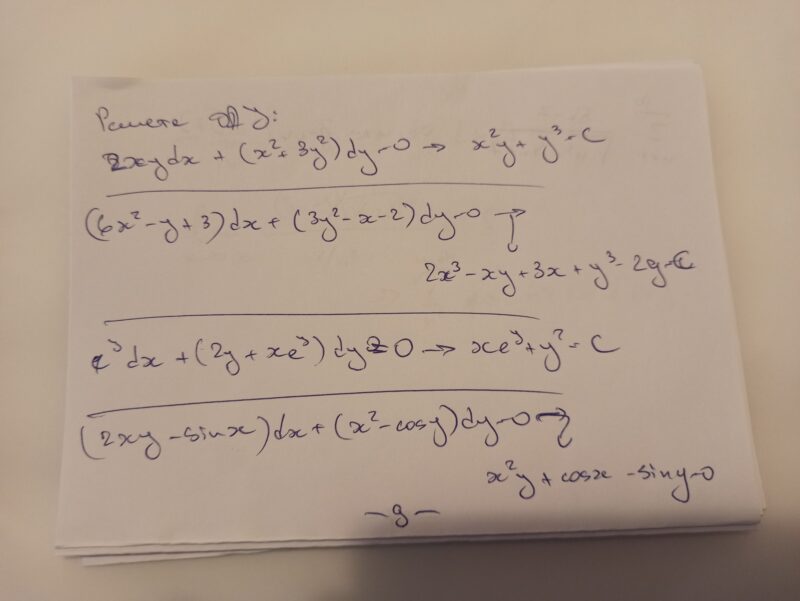 Решете ДУ:
2xydx + (x²+3y²)dy=0 → x²y + y³=C
(6x²-y+3)dx + (3y²-x-2)dy=0 →
2x³-xy+3x+y³-2y=C
e^y dx + (2y+xe^y)dy=0 → xe^y+y²=C
(2xy-sinx)dx + (x²-cosy)dy=0 →
x²y+cosx-siny=0
-9-